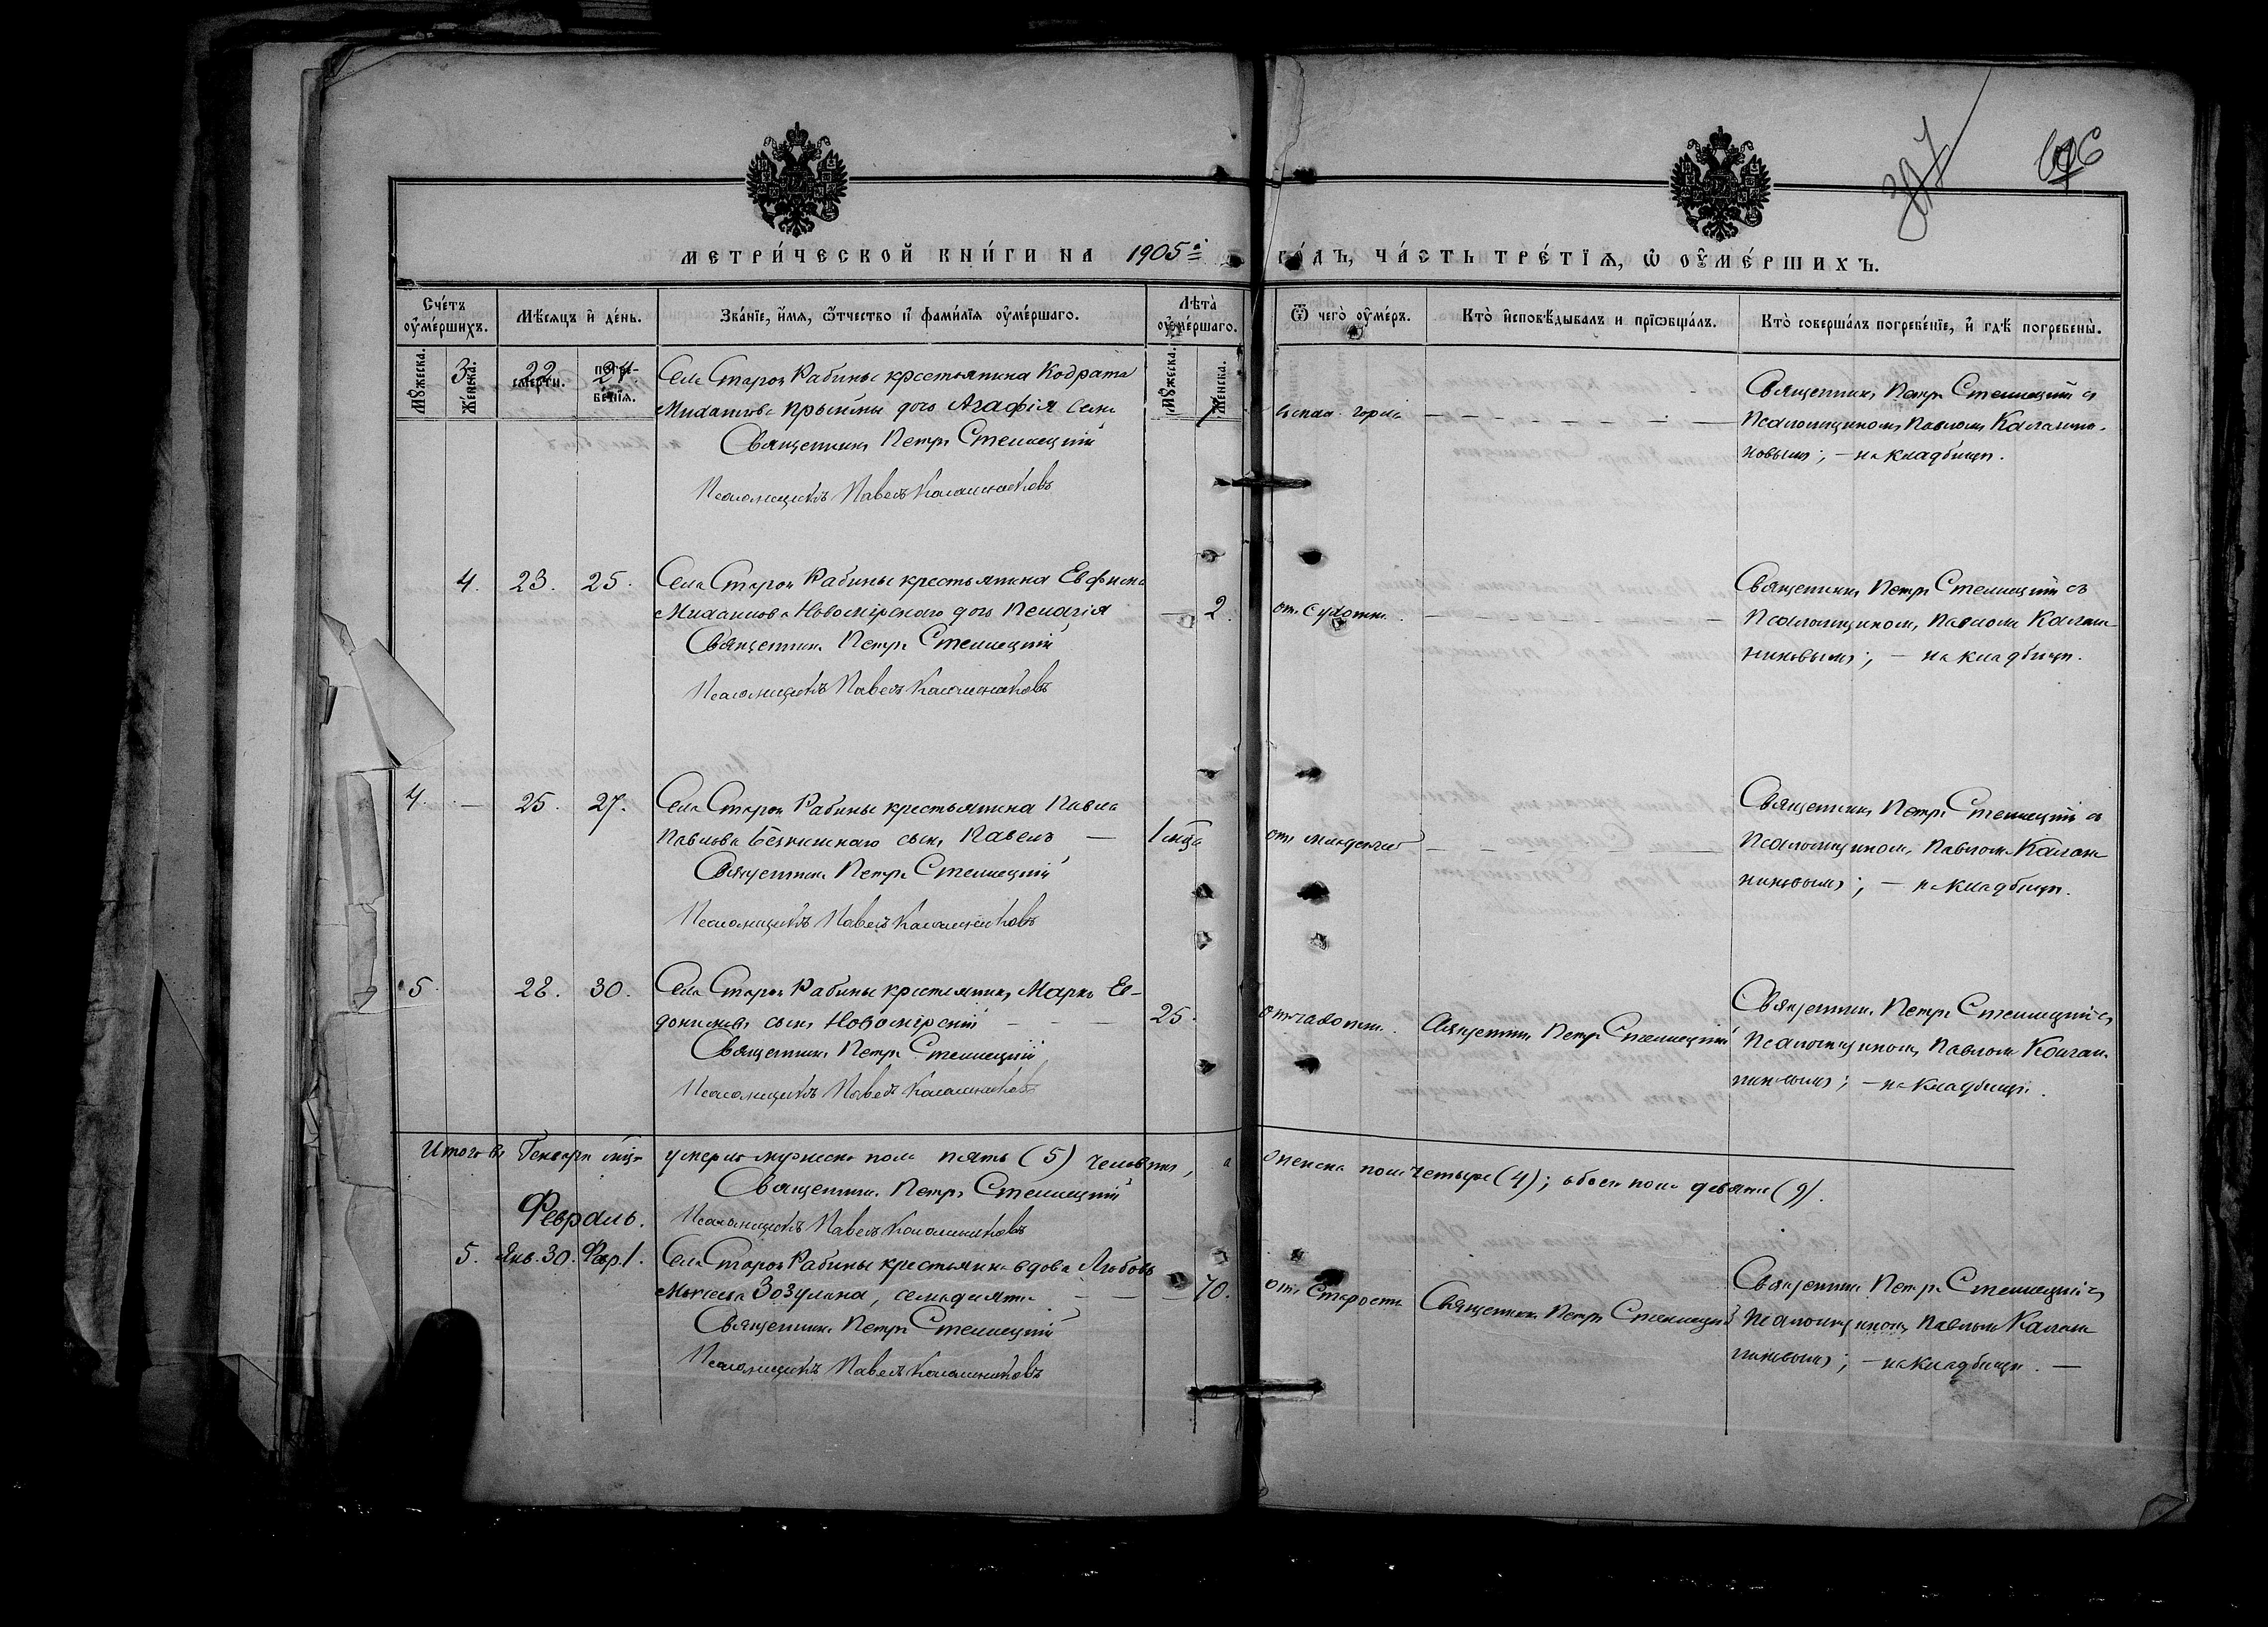 МЕТРИ́ЧЕСКОЙ КНИ́ГИ НА 1905й ГО́ДЪ, ЧА́СТЬ ТРЕ́ТІѦ, Ѿ ОУ҆МЕ́РШИХЪ.
Сче́тъ оу҆ме́ршихъ.
Мѣ́сяцъ и҆ де́нь.
Зва́нїе, и҆́мя, ѻ҆́тчество и҆ фами́лїя оу҆ме́ршаго.
Лѣта̀ оу҆ме́ршаго.
Ѿ чегѡ̀ оу҆ме́ръ.
Кто̀ и҆сповѣ́дывалъ и прїѡбща́лъ.
Кто̀ соверша́лъ погребе́нїе, и҆ гдѣ̀ погребены̀.
Мꙋ́жеска.
Же́нска.
сме́рти.
погре-
бе́нїя.
Мꙋ́жеска.
Же́нска.
3. 22. 24.
Села Старой Рабины крестьянина Кодрата
дочь Агафія
Священникъ Петръ Стеллецкій
Псаломщикъ Павелъ Калашниковъ
Священникъ Петръ Стеллецкій съ
Псаломщикомъ Павломъ Калашни-
ковымъ; – на кладбищѣ.
4. 23. 25.
Села Старой Рабины крестьянина Евфима
Михайлова Новомірскаго дочь Пелагія
Священникъ Петръ Стеллецкій
Псаломщикъ Павелъ Калашниковъ
— 2.
отъ сухотки.
Священникъ Петръ Стеллецкій съ
Псаломщикомъ Павломъ Калаш-
никовымъ; – на кладбищѣ.
4. — 25. 27.
Села Старой Рабины крестьянина Павла
Павлова сынъ Павелъ —
Священникъ Петръ Стеллецкій
Псаломщикъ Павелъ Калашниковъ
1 мца
отъ младенчес
Священникъ Петръ Стеллецкій съ
Псаломщикомъ Павломъ Калаш-
никовымъ; – на кладбищѣ.
5. 28. 30.
Села Старой Рабины крестьянинъ Марко Ев-
докимовъ сынъ Новомірскій — — —
Священникъ Петръ Стеллецкій
Псаломщикъ Павелъ Калашниковъ
25.
отъ чахотки.
Священникъ Петръ Стеллецкій
Священникъ Петръ Стеллецкій съ
Псаломщикомъ Павломъ Калаш-
никовымъ; – на кладбищѣ.
Итого въ Генварѣ мцѣ умерло мужеска пола пять (5) человѣкъ, а женска пола четыре (4); обоего пола девять (9).
Священникъ Петръ Стеллецкій
Февраль.
Псаломщикъ Павелъ Калашниковъ
5. Янв. 30. Февр. 1.
Села Старой Рабины крестьянка вдова Любовь
Зозулина, семидесяти — —
Священникъ Петръ Стеллецкій
Псаломщикъ Павелъ Калашниковъ
— 70.
отъ старости
Священникъ Петръ Стеллецкій
Священникъ Петръ Стеллецкій съ
Псаломщикомъ Павломъ Калаш-
никовымъ; – на кладбищѣ. —